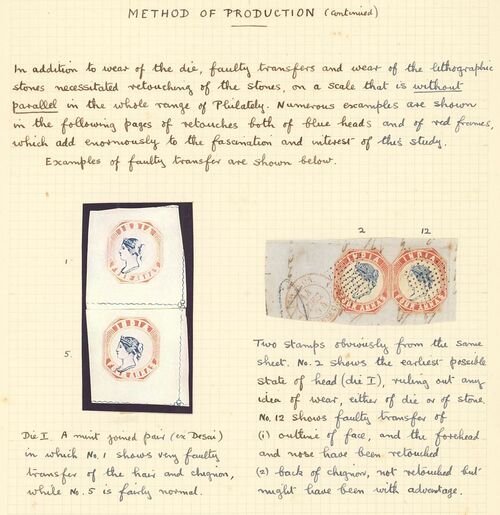 METHOD OF PRODUCTION (continued)
In addition to wear of the die, faulty transfers and wear of the lithographic
stones necessitated retouching of the stones, on a scale that is without
parallel in the whole range of Philately. Numerous examples are shown
in the following pages of retouches both of blue heads and of red frames,
which add enormously to the fascination and interest of this study.
Examples of faulty transfer are shown below.
1
INDIA
FOUR ANNAS
5.
INDIA
FOUR ANNAS
Die I. A mint joined pair (ex Desai)
in which No. 1 shows very faulty
transfer of the hair and chignon,
while No. 5 is fairly normal.
2 12
INDIA INDIA
FOUR ANNAS FOUR ANNAS
Two stamps obviously from the same
sheet. No. 2 shows the earliest possible
state of head (die I), ruling out any
idea of wear, either of die or of stone.
No. 12 shows faulty transfer of
(1) outline of face, and the forehead
and nose have been retouched
(2) back of chignon, not retouched but
might have been with advantage.